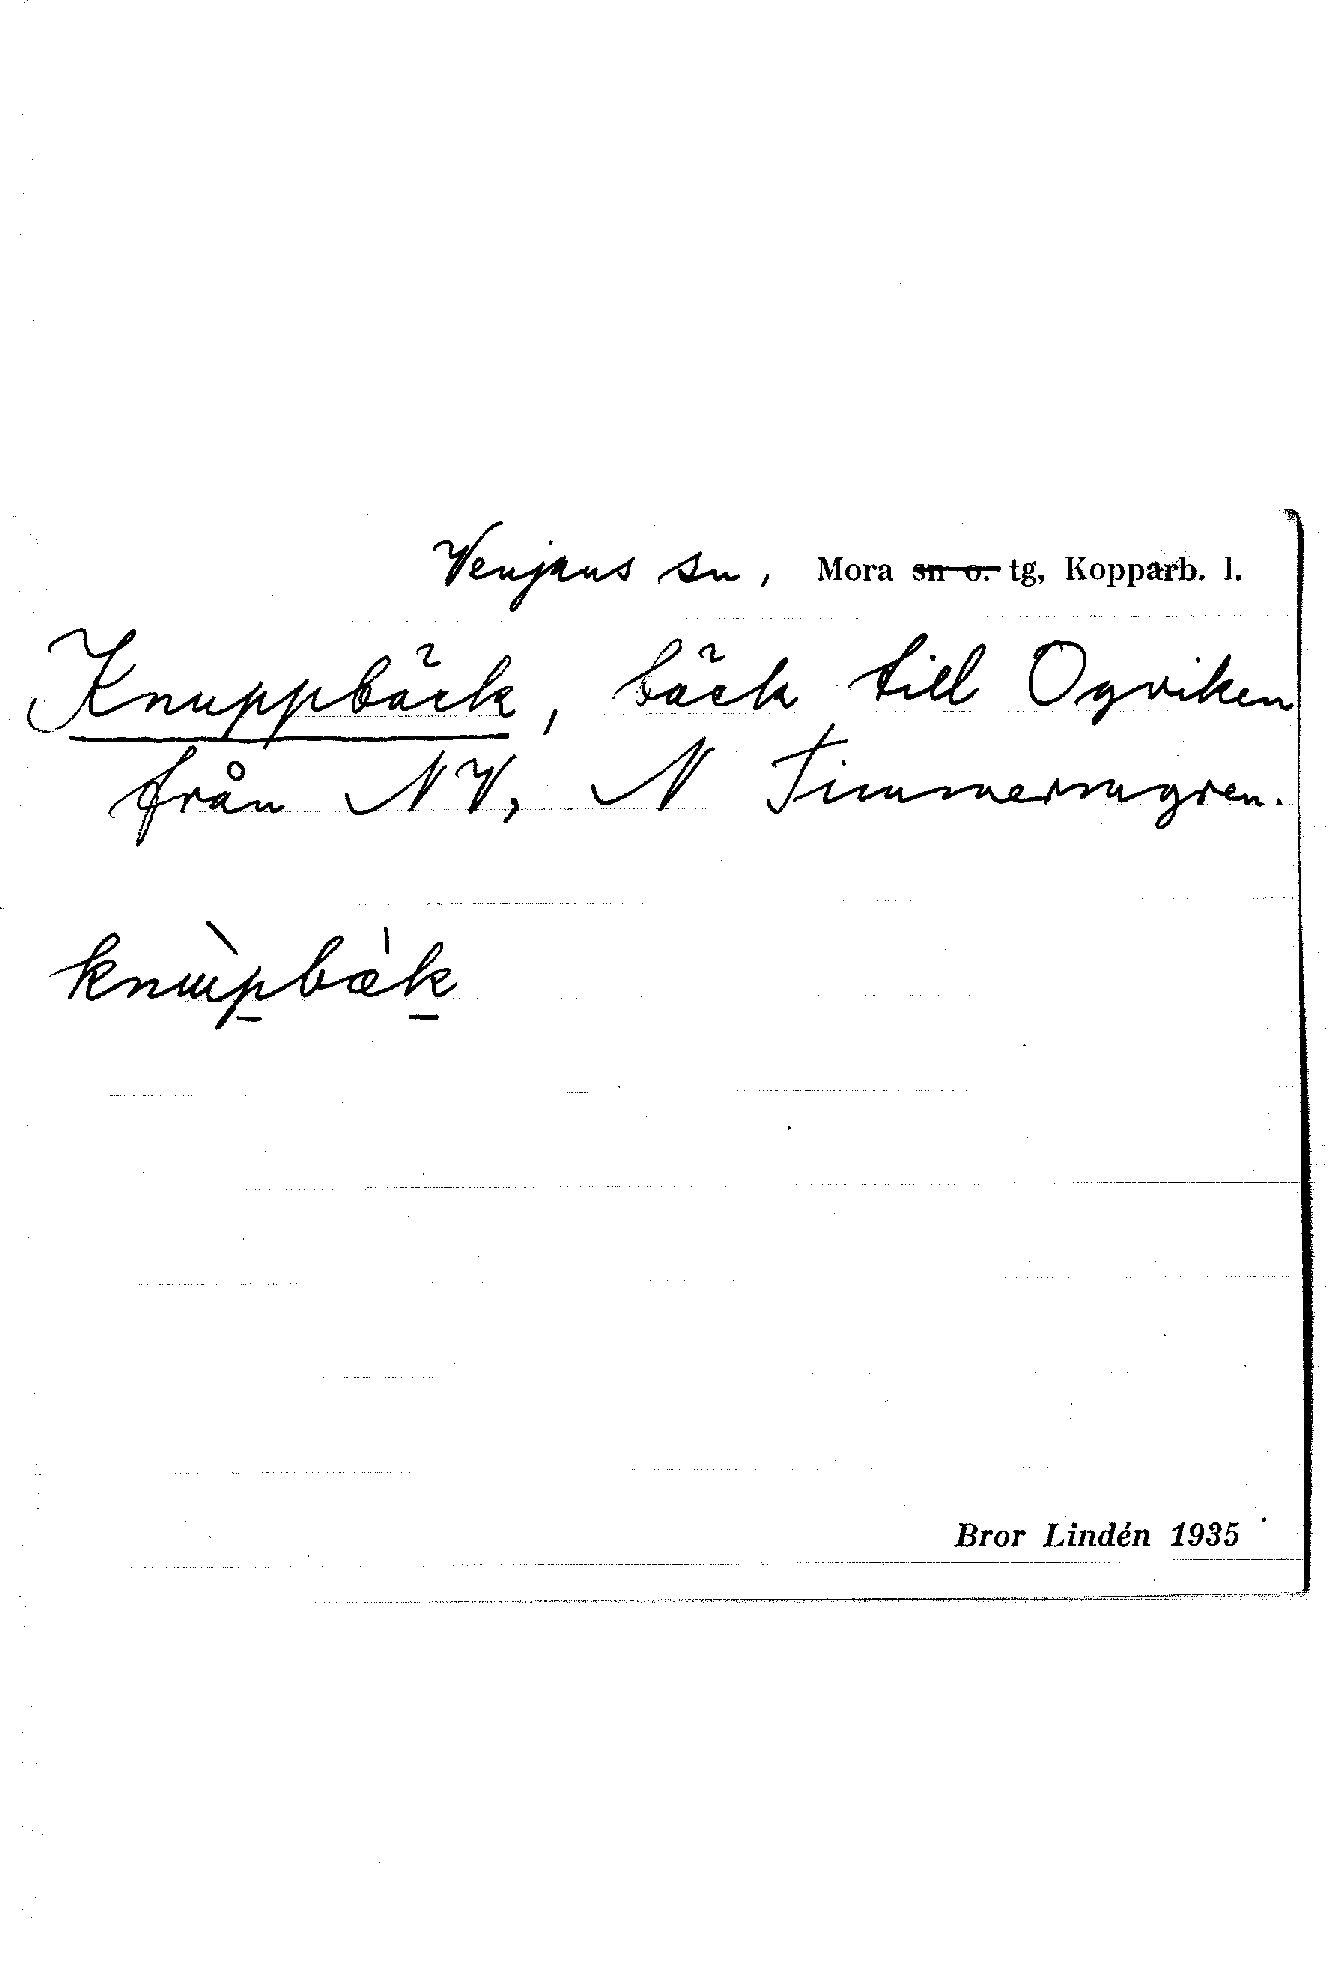 Venjans sn, Mora sn o. tg, Kopparb. l.
Knuppbäck, bäck till Ogviken
från NV, N Timmermgren.
Bror Lindén 1935